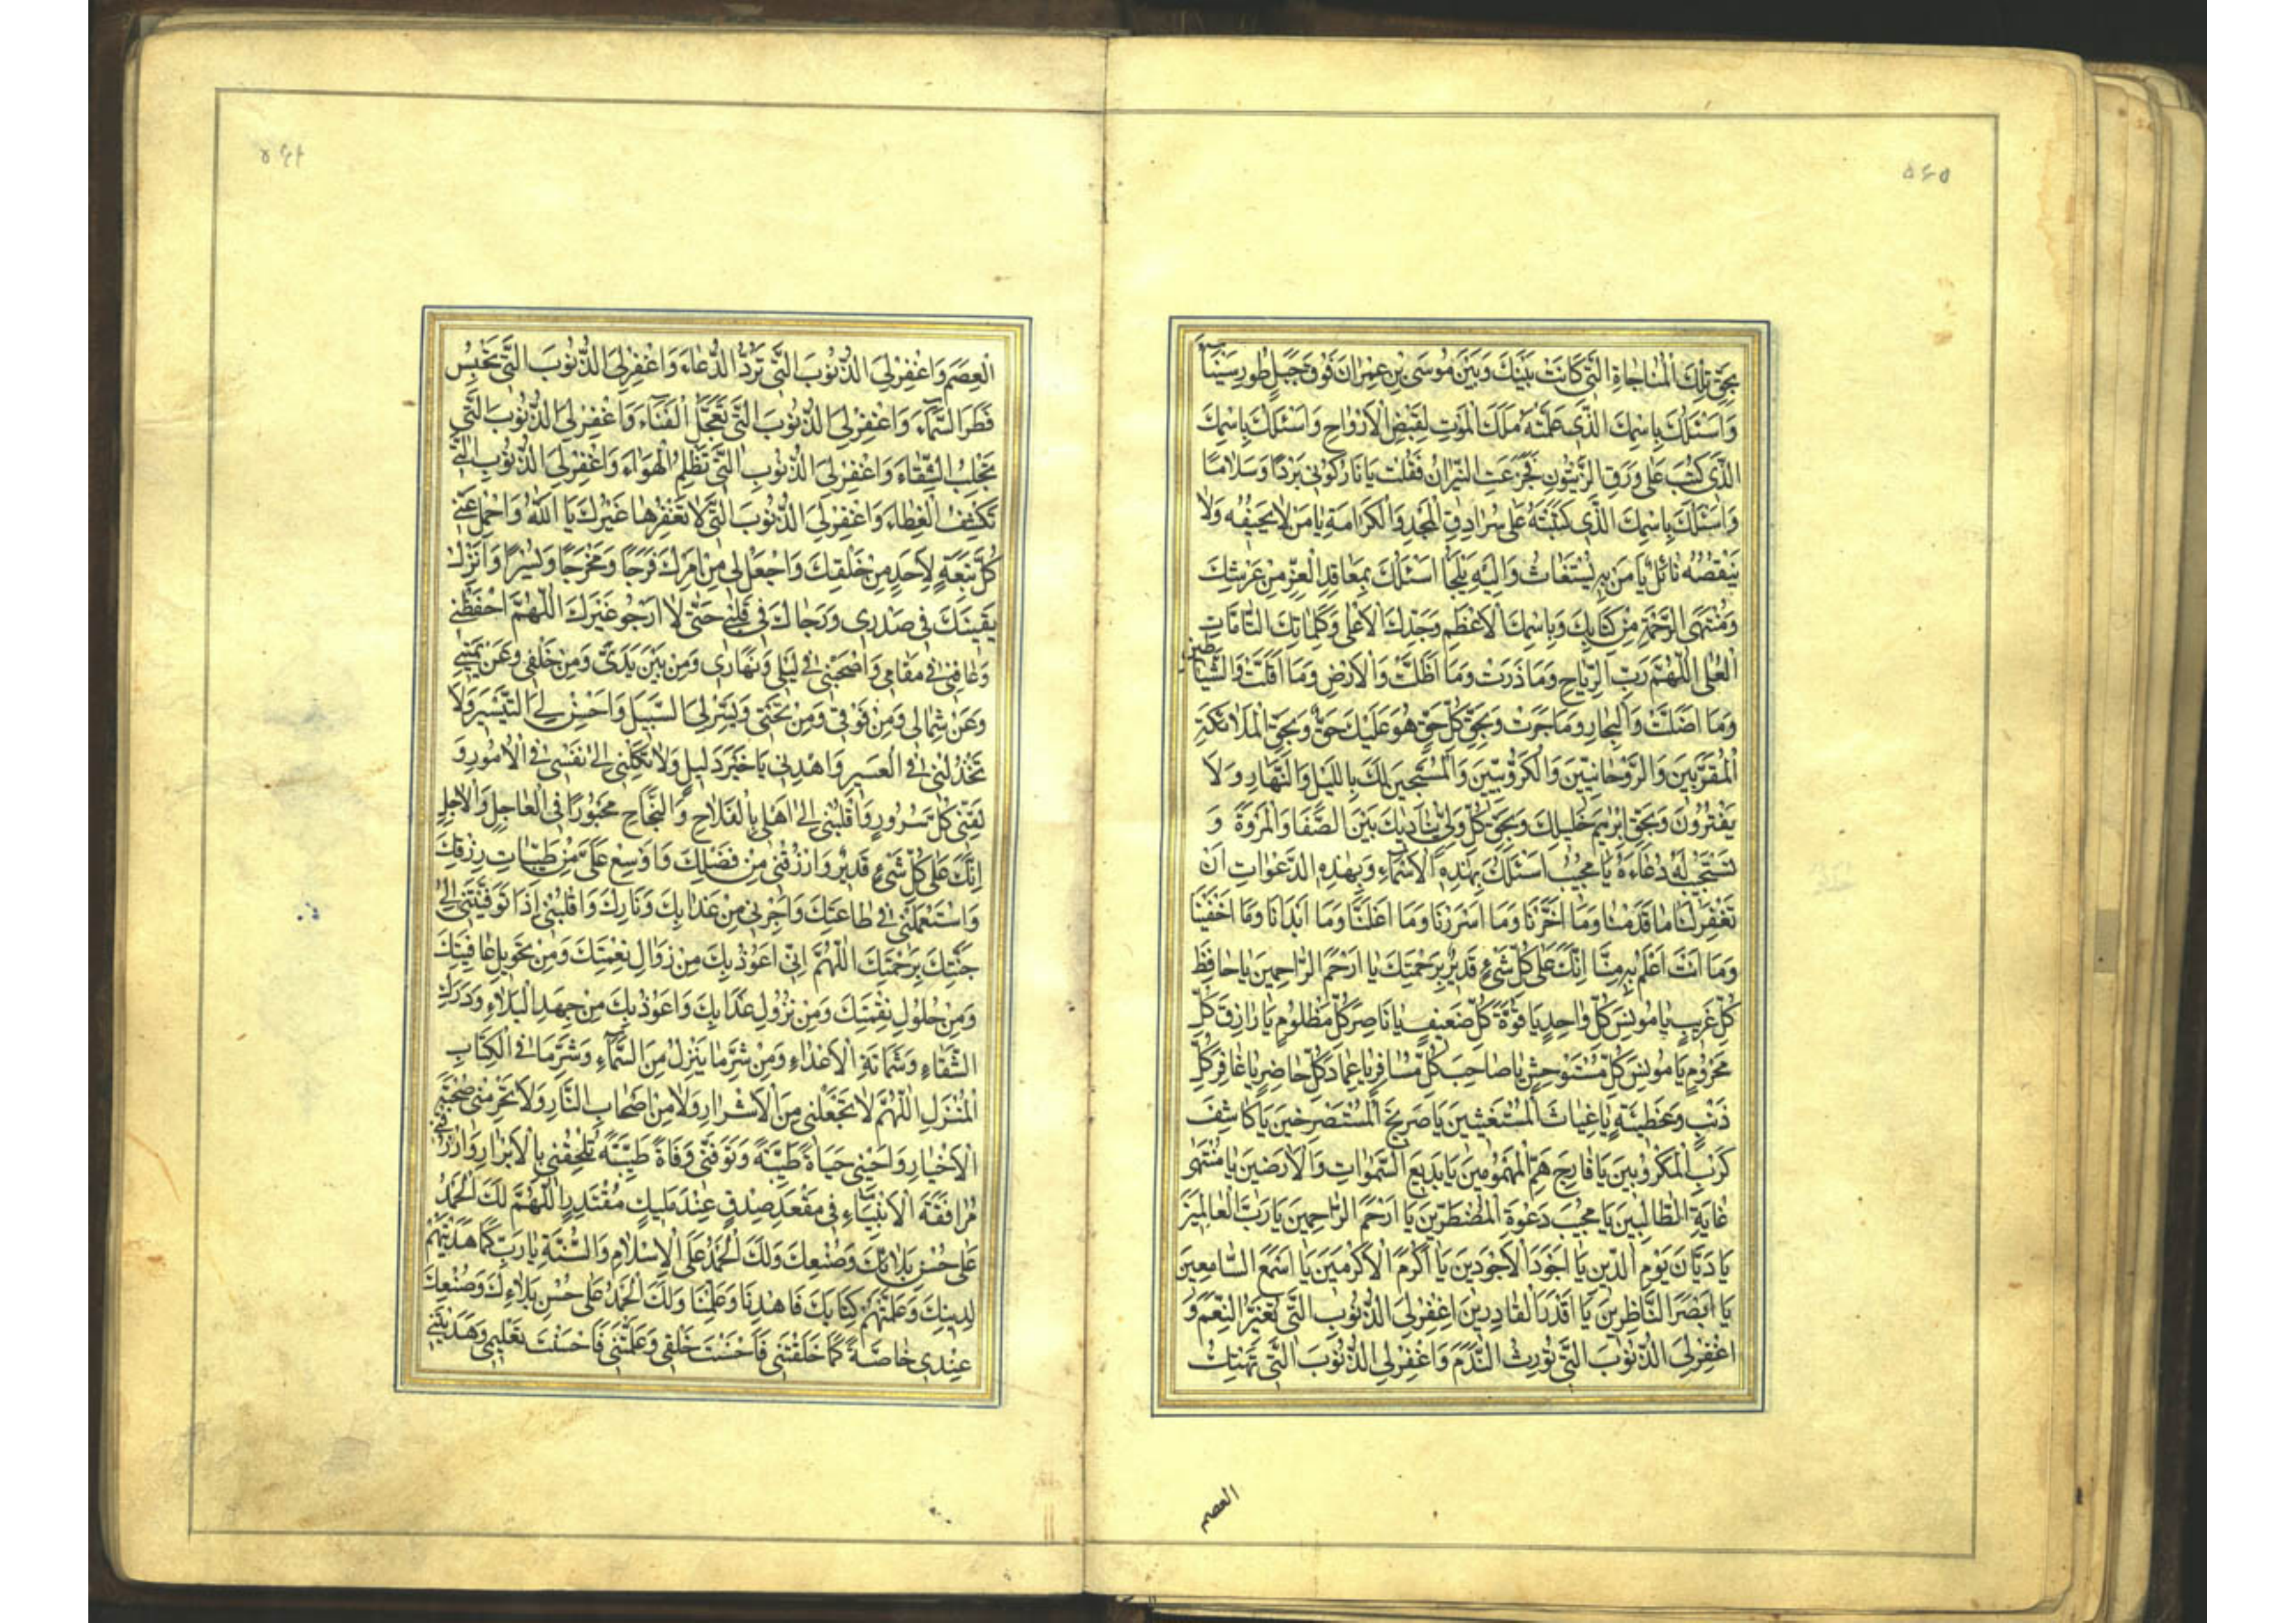 ۵۴۵
بِحَقِّ تِلْكَ الْمُنَاجَاةِ الَّتِي كَانَتْ بَيْنَكَ وَبَيْنَ مُوسَى بْنِ عِمْرَانَ فَوْقَ جَبَلِ طُورِ سَيْنَاءَ
وَاَسْئَلُكَ بِاسْمِكَ الَّذِي عَلَّمْتَهُ مَلَكَ الْمَوْتِ لِقَبْضِ الْاَرْوَاحِ وَاَسْئَلُكَ بِاسْمِكَ
الَّذِي كُتِبَ عَلَى وَرَقِ الزَّيْتُونِ فَخَضَعَتِ النِّيرَانُ فَقُلْتَ يَا نَارُ كُونِي بَرْدًا وَسَلَامًا
وَاَسْئَلُكَ بِاسْمِكَ الَّذِي كَتَبْتَهُ عَلَى سُرَادِقِ الْمَجْدِ وَالْكَرَامَةِ يَا مَنْ لَا يُحْفِيهُ وَلَا
يَنْقُصُهُ نَائِلٌ يَا مَنْ بِهِ يُسْتَغَاثُ وَاِلَيْهِ يُلْجَأُ اَسْئَلُكَ بِمَعَاقِدِ الْعِزِّ مِنْ عَرْشِكَ
وَمُنْتَهَى الرَّحْمَةِ مِنْ كِتَابِكَ وَبِاسْمِكَ الْاَعْظَمِ وَجَدِّكَ الْاَعْلَى وَكَلِمَاتِكَ التَّامَّاتِ
الْعُلَى اَللّٰهُمَّ رَبَّ الرِّيَاحِ وَمَا ذَرَتْ وَمَا اَظَلَّتْ وَالْاَرْضِ وَمَا اَقَلَّتْ وَالشَّيَاطِينِ
وَمَا اَضَلَّتْ وَالْبِحَارِ وَمَا جَرَتْ وَبِحَقِّ كُلِّ حَقٍّ هُوَ عَلَيْكَ حَقٌّ وَبِحَقِّ الْمَلَائِكَةِ
الْمُقَرَّبِينَ وَالرَّوْحَانِيِّينَ وَالْكَرُّوبِيِّينَ وَالْمُسَبِّحِينَ لَكَ بِاللَّيْلِ وَالنَّهَارِ وَلَا
يَفْتُرُونَ وَبِحَقِّ اِبْرٰهِيمَ خَلِيلِكَ وَبِحَقِّ كُلِّ وَلِيٍّ يُنَادِيكَ بَيْنَ الصَّفَا وَالْمَرْوَةِ وَ
تَسْتَجِيبُ لَهُ دُعَاءَهُ يَا مُجِيبُ اَسْئَلُكَ بِهٰذِهِ الْاَسْمَاءِ وَبِهٰذِهِ الدَّعَوَاتِ اَنْ
تَغْفِرَ لَنَا مَا قَدَّمْنَا وَمَا اَخَّرْنَا وَمَا اَسْرَرْنَا وَمَا اَعْلَنَّا وَمَا اَبْدَانَا وَمَا اَخْفَيْنَا
وَمَا اَنْتَ اَعْلَمُ بِهِ مِنَّا اِنَّكَ عَلَى كُلِّ شَيْءٍ قَدِيرٌ بِرَحْمَتِكَ يَا اَرْحَمَ الرَّاحِمِينَ يَا حَافِظَ
كُلِّ غَرِيبٍ يَا مُونِسَ كُلِّ وَاحِدٍ يَا قُوَّةَ كُلِّ ضَعِيفٍ يَا نَاصِرَ كُلِّ مَظْلُومٍ يَا رَازِقَ كُلِّ
مَحْرُومٍ يَا مُونِسَ كُلِّ مُسْتَوْحِشٍ يَا صَاحِبَ كُلِّ مُسَافِرٍ يَا عِمَادَ كُلِّ حَاضِرٍ يَا غَافِرَ كُلِّ
ذَنْبٍ وَخَطِيئَةٍ يَا غِيَاثَ الْمُسْتَغِيثِينَ يَا صَرِيخَ الْمُسْتَصْرِخِينَ يَا كَاشِفَ
كَرْبِ الْمَكْرُوبِينَ يَا فَارِجَ هَمِّ الْمَهْمُومِينَ يَا بَدِيعَ السَّمٰوَاتِ وَالْاَرَضِينَ يَا مُنْتَهَى
غَايَةِ الطَّالِبِينَ يَا مُجِيبَ دَعْوَةِ الْمُضْطَرِّينَ يَا اَرْحَمَ الرَّاحِمِينَ يَا رَبَّ الْعَالَمِينَ
يَا دَيَّانَ يَوْمِ الدِّينِ يَا اَجْوَدَ الْاَجْوَدِينَ يَا اَكْرَمَ الْاَكْرَمِينَ يَا اَسْمَعَ السَّامِعِينَ
يَا اَبْصَرَ النَّاظِرِينَ يَا اَقْدَرَ الْقَادِرِينَ اِغْفِرْ لِيَ الذُّنُوبَ الَّتِي تُغَيِّرُ النِّعَمَ وَ
اغْفِرْ لِيَ الذُّنُوبَ الَّتِي تُورِثُ النَّدَمَ وَاغْفِرْ لِيَ الذُّنُوبَ الَّتِي تَهْتِكُ
العصم
الْعِصَمَ وَاغْفِرْ لِيَ الذُّنُوبَ الَّتِي تَرُدُّ الدُّعَاءَ وَاغْفِرْ لِيَ الذُّنُوبَ الَّتِي تَحْبِسُ
قَطْرَ السَّمَاءِ وَاغْفِرْ لِيَ الذُّنُوبَ الَّتِي تُعَجِّلُ الْفَنَاءَ وَاغْفِرْ لِيَ الذُّنُوبَ الَّتِي
تَجْلِبُ الشَّقَاءَ وَاغْفِرْ لِيَ الذُّنُوبَ الَّتِي تُظْلِمُ الْهَوَاءَ وَاغْفِرْ لِيَ الذُّنُوبَ الَّتِي
تَكْشِفُ الْغِطَاءَ وَاغْفِرْ لِيَ الذُّنُوبَ الَّتِي لَا تَغْفِرُهَا غَيْرُكَ يَا اَللّٰهُ وَاحْمِلْ عَنِّي
كُلَّ تَبِعَةٍ لِاَحَدٍ مِنْ خَلْقِكَ وَاجْعَلْ لِي مِنْ اَمْرِكَ فَرَجًا وَمَخْرَجًا وَيُسْرًا وَاَنْزِلْ
يَقِينَكَ فِي صَدْرِي وَرَجَاكَ فِي قَلْبِي حَتَّى لَا اَرْجُوَ غَيْرَكَ اَللّٰهُمَّ احْفَظْنِي
وَعَافِنِي فِي مَقَامِي وَاصْحَبْنِي فِي لَيْلِي وَنَهَارِي وَمِنْ بَيْنِ يَدَيَّ وَمِنْ خَلْفِي وَعَنْ يَمِينِي
وَعَنْ شِمَالِي وَمِنْ فَوْقِي وَمِنْ تَحْتِي وَيَسِّرْ لِيَ السَّبِيلَ وَاَحْسِنْ لِيَ التَّيْسِيرَ وَلَا
تَخْذُلْنِي فِي الْعَسِيرِ وَاهْدِنِي يَا خَيْرَ دَلِيلٍ وَلَا تَكِلْنِي اِلَى نَفْسِي فِي الْاُمُورِ وَ
لَقِّنِي كُلَّ سُرُورٍ وَاقْلِبْنِي اِلَى اَهْلِي بِالْفَلَاحِ وَالنَّجَاحِ مَحْبُورًا فِي الْعَاجِلِ وَالْاٰجِلِ
اِنَّكَ عَلَى كُلِّ شَيْءٍ قَدِيرٌ وَارْزُقْنِي مِنْ فَضْلِكَ وَاَوْسِعْ عَلَيَّ مِنْ طَيِّبَاتِ رِزْقِكَ
وَاسْتَعْمِلْنِي فِي طَاعَتِكَ وَاَجِرْنِي مِنْ عَذَابِكَ وَنَارِكَ وَاقْلِبْنِي اِذَا تَوَفَّيْتَنِي اِلَى
جَنَّتِكَ بِرَحْمَتِكَ اَللّٰهُمَّ اِنِّي اَعُوذُ بِكَ مِنْ زَوَالِ نِعْمَتِكَ وَمِنْ تَحْوِيلِ عَافِيَتِكَ
وَمِنْ حُلُولِ نِقْمَتِكَ وَمِنْ نُزُولِ عَذَابِكَ وَاَعُوذُ بِكَ مِنْ جَهْدِ الْبَلَاءِ وَدَرَكِ
الشَّقَاءِ وَشَمَاتَةِ الْاَعْدَاءِ وَمِنْ شَرِّ مَا يَنْزِلُ مِنَ السَّمَاءِ وَشَرِّ مَا فِي الْكِتَابِ
الْمُنْزَلِ اَللّٰهُمَّ لَا تَجْعَلْنِي مِنَ الْاَشْرَارِ وَلَا مِنْ اَصْحَابِ النَّارِ وَلَا تَحْرِمْنِي صُحْبَةَ
الْاَخْيَارِ وَاَحْيِنِي حَيَاةً طَيِّبَةً وَتَوَفَّنِي وَفَاةً طَيِّبَةً تُلْحِقُنِي بِالْاَبْرَارِ وَارْزُقْنِي
مُرَافَقَةَ الْاَنْبِيَاءِ فِي مَقْعَدِ صِدْقٍ عِنْدَ مَلِيكٍ مُقْتَدِرٍ اَللّٰهُمَّ لَكَ الْحَمْدُ
عَلَى حُسْنِ بَلَائِكَ وَصُنْعِكَ وَلَكَ الْحَمْدُ عَلَى الْاِسْلَامِ وَالسُّنَّةِ يَا رَبِّ كَمَا هَدَيْتَهُمْ
لِدِينِكَ وَعَلَّمْتَهُمْ كِتَابَكَ فَاهْدِنَا وَعَلِّمْنَا وَلَكَ الْحَمْدُ عَلَى حُسْنِ بَلَاءِكَ وَصُنْعِكَ
عِنْدِي خَاصَّةً كَمَا خَلَقْتَنِي فَاَحْسَنْتَ خَلْقِي وَعَلَّمْتَنِي فَاَحْسَنْتَ تَعْلِيمِي وَهَدَيْتَنِي